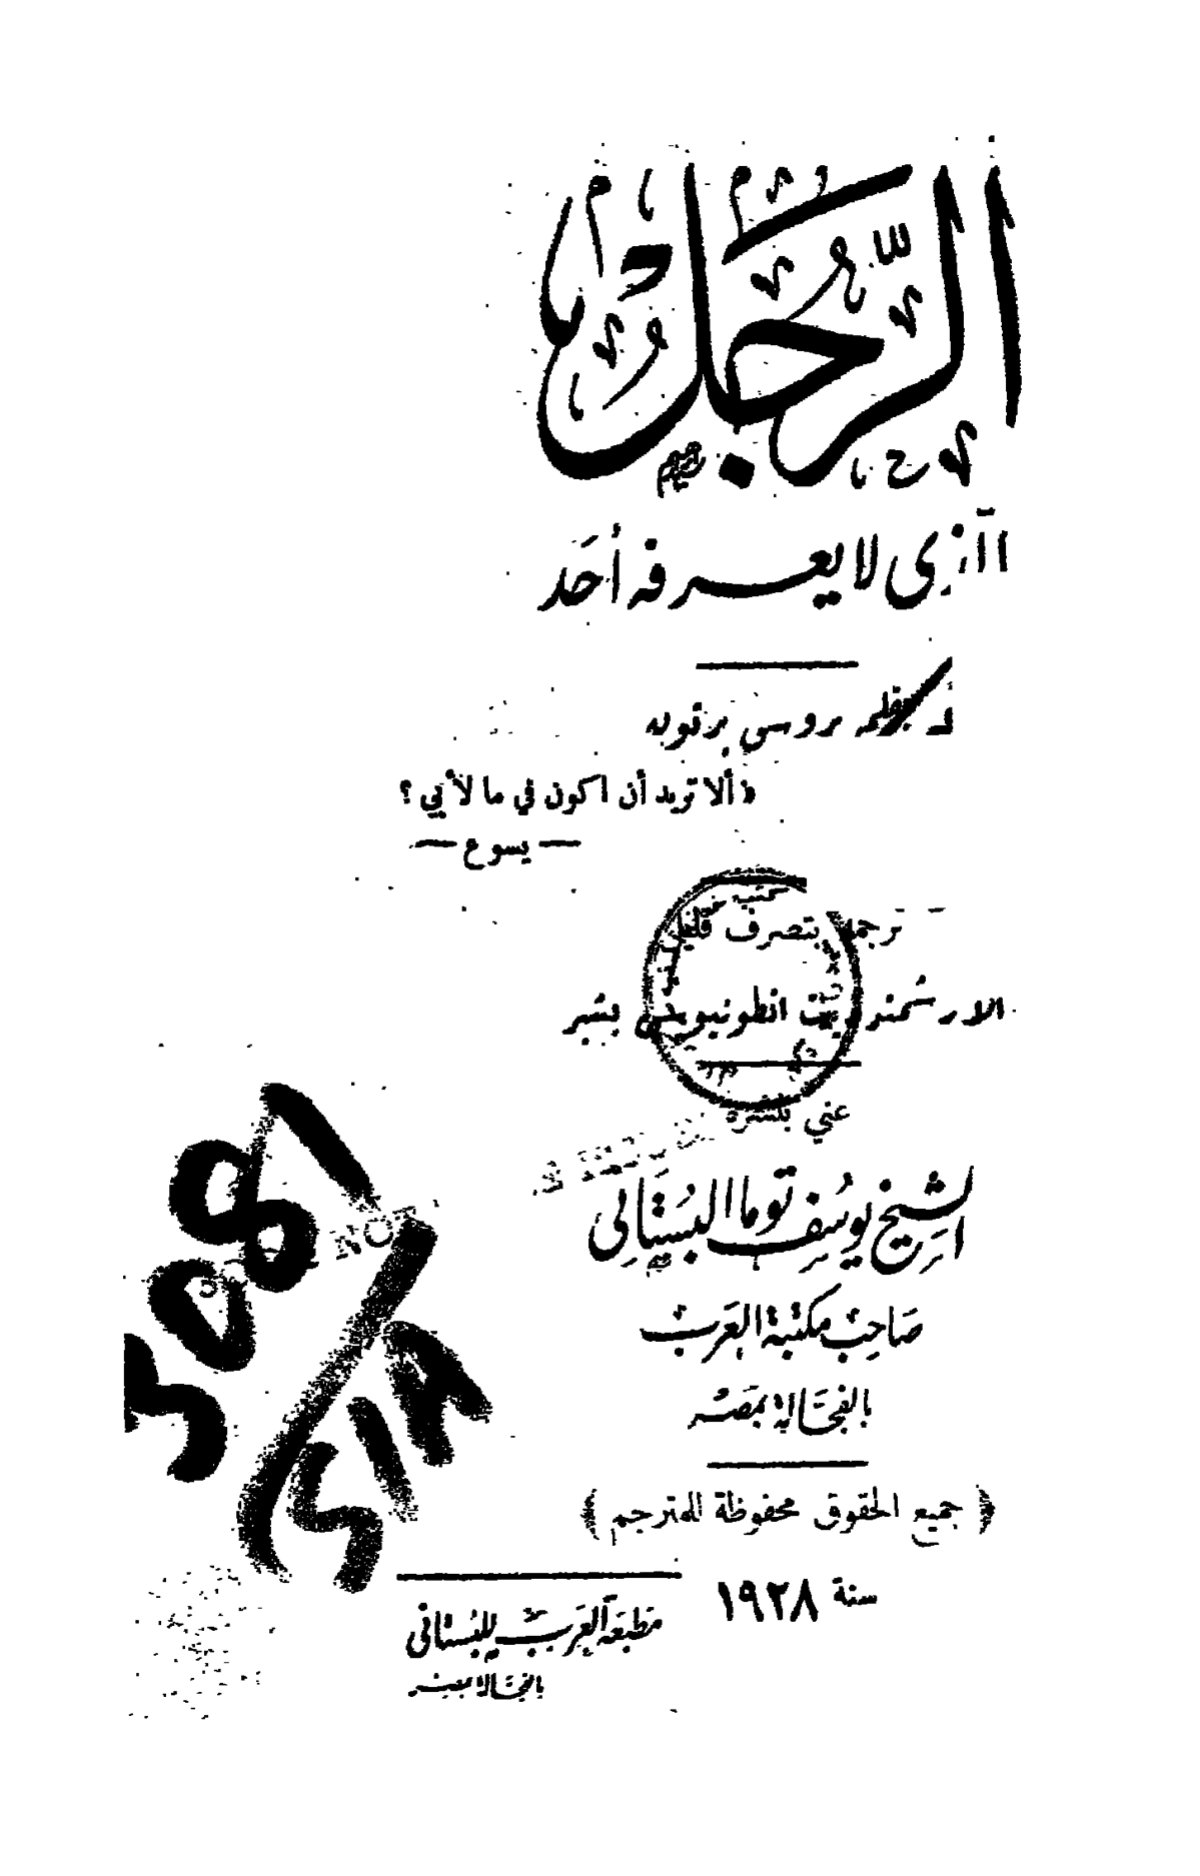 الرَّجُل
الذي لا يعرفه أحَد
بقلم بروس برتون
« ألا تريد أن اكون في ما لأبي ؟
— يسوع —
ترجمه بتصرف قليل
الارشمندريت انطونيوس بشير
عني بنشره
الشيخ يوسف توما البستاني
صاحب مكتبة العرب
بالفجالة بمصر
﴿ جميع الحقوق محفوظة للمترجم ﴾
سنة ١٩٢٨
مطبعة العرب للبستاني
بالفجالة بمصر
NOT